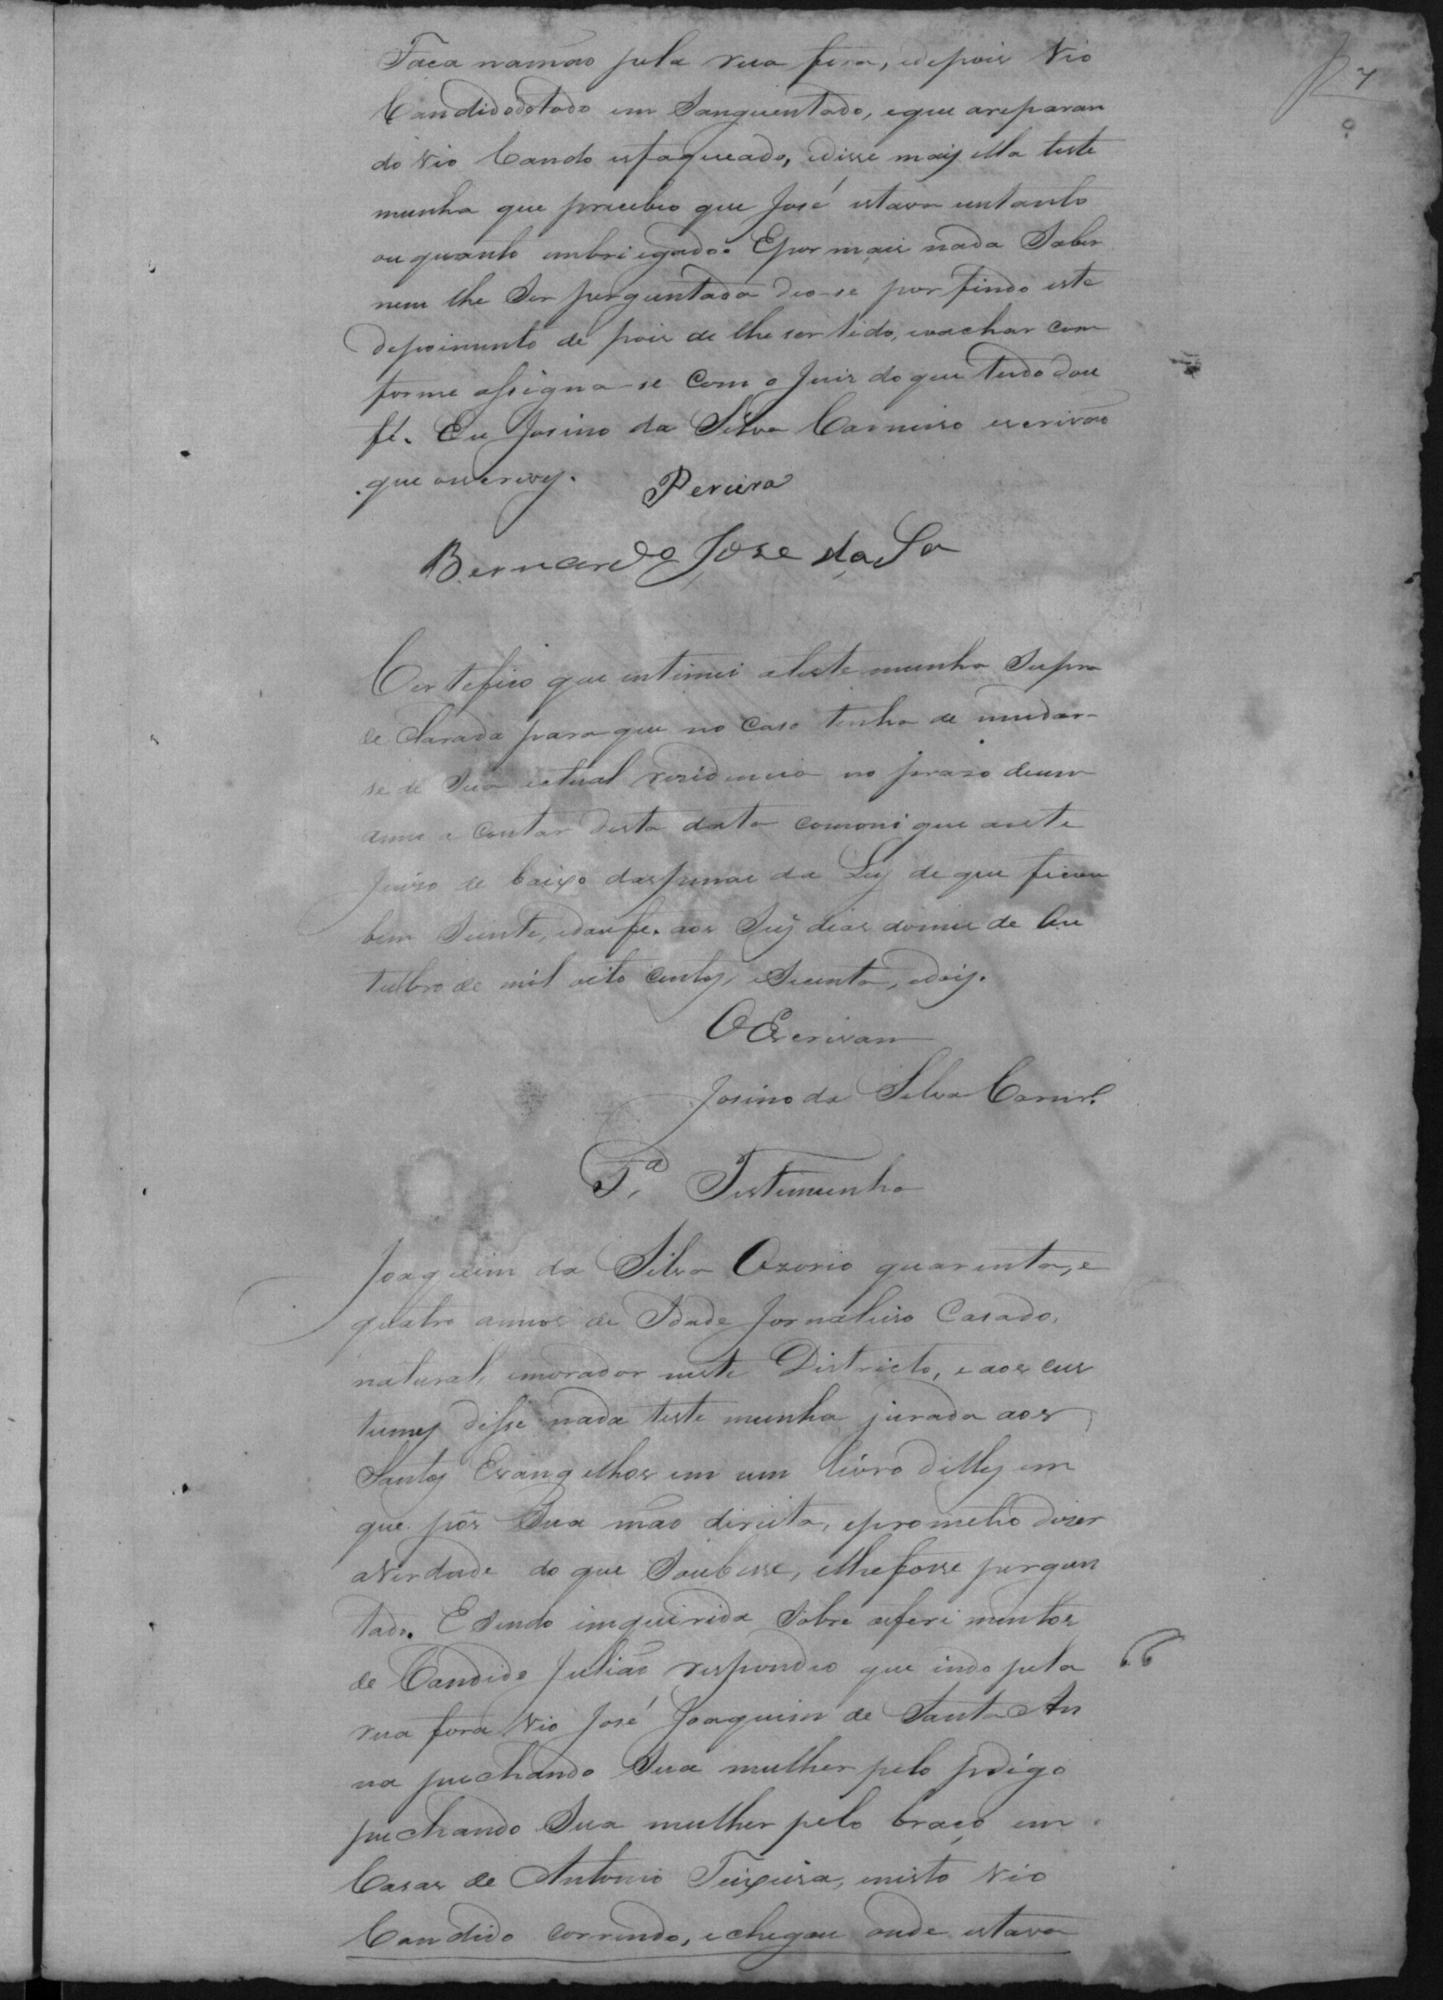 7
Faca namão pela rua fora, edepois vio
Candidotodo em Sanguentado, eque areparan
do vio Cando esfaqueado, edisse mais ella teste
munha que precebeo que José estava umtanto
ouquanto embriegado. Epor mais nada Saber
nem lhe Ser perguntado deo-se por findo este
depoimento de pois de lhe ser lido, eoachar com
forme assigna-se com o Juis doque tudo dou
fé. Eu Josino da Silva Carneiro escrivão
que oescrevy. Pereira
Bernardo Jose da Sa
Certefico que intimei atestemunha Supra
de Clarada para que no caso tenha de mudar-
se de Sua actual residencia no praso deum
anno a contar desta data comoni que aeste
Juiso de baixo daspenas da Ley de que ficou
bem Siente, edoufe. aos Seis dias domes de Ou
tubro de mil oito centos, eSecenta, edois.
OEscrivam
Josino da Silva Carnrº.
Testemunha
Joaquim da Silva Ozorio quarenta, e
quatro annos de Idade Jornaleiro Casado,
natural, emorador neste Districto, e aos cus
tumes disse nada teste munha jurada aos
Santos Evangelhos em um livro delles em
que pos Sua mão direita, eprometeo diser
averdade do que Soubesse, elhefosse pergun
tado. E Sendo imquirida Sobre osferi mentos
de Candido Julião respondeo que indo pela
rua fora vio José Joaquim de Santa An
na puchando Sua mulher pelo pdigo
puchando Sua mulher pelo braço em
Casas de Antonio Teixeira, enisto vio
Candido correndo, echegou onde estava